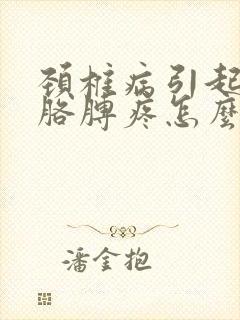 頚椎病引起
胳脾疼怎麼
潘金抱